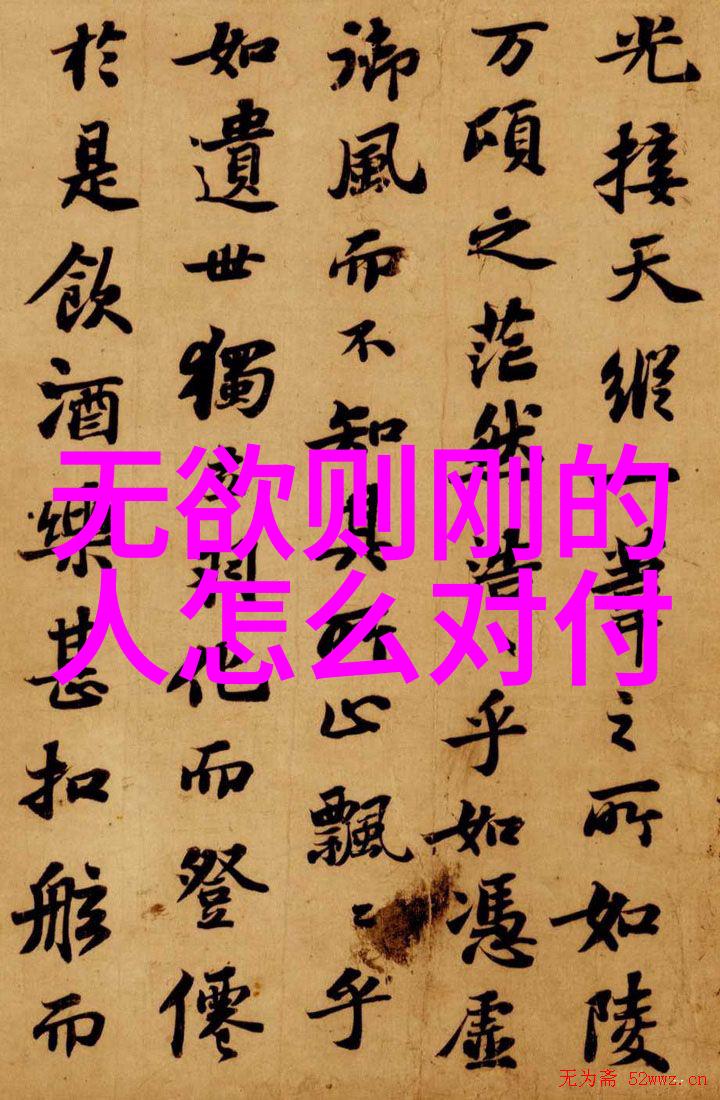 光接天縱一葦之所如陵
万頃之茫然浩〻乎如憑虛
御風而不知其所止飄〻乎
如遺世獨立羽化而登僊
於是飲酒樂甚扣舷而
无欲则刚的
人怎么对付
无为斋 52wwz.cn